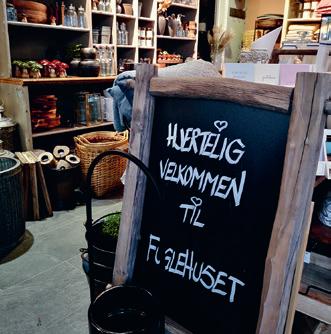 HJERTELIG
VELKOMMEN
TIL
FUGLEHUSET